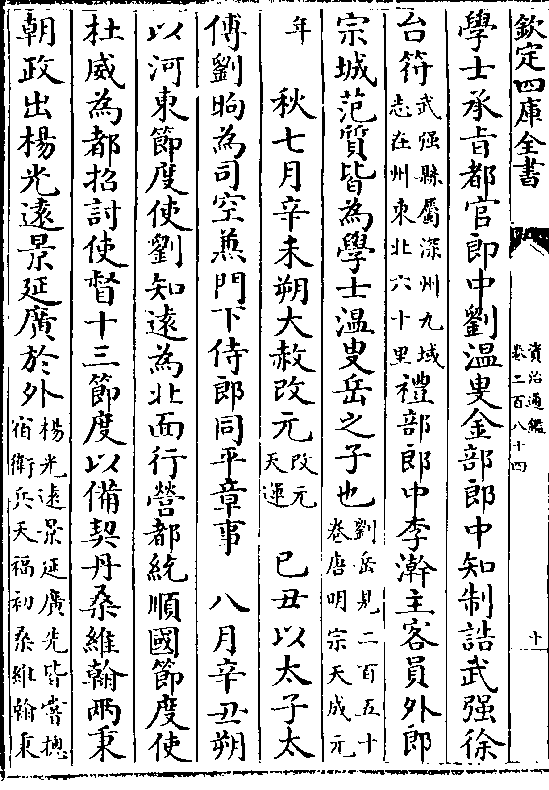 欽定四庫全書
資治通鑑
卷二百八十四
十
學士承㫖都官郎中劉温叟金部郎中知制誥武强徐
台符武强縣屬深州九域
志在州東北六十里禮部郎中李澣主客員外郎
宗城范質皆為學士温叟岳之子也劉岳見二百五十
卷唐明宗天成元
年
秋七月辛未朔大赦改元改元
天運
己丑以太子太
傅劉昫為司空兼門下侍郎同平章事
八月辛丑朔
以河東節度使劉知遠為北面行營都統順國節度使
杜威為都招討使督十三節度以備契丹桑維翰兩秉
朝政出楊光遠景延廣於外楊光遠景延廣先皆嘗揔
宿衛兵天福初桑維翰秉